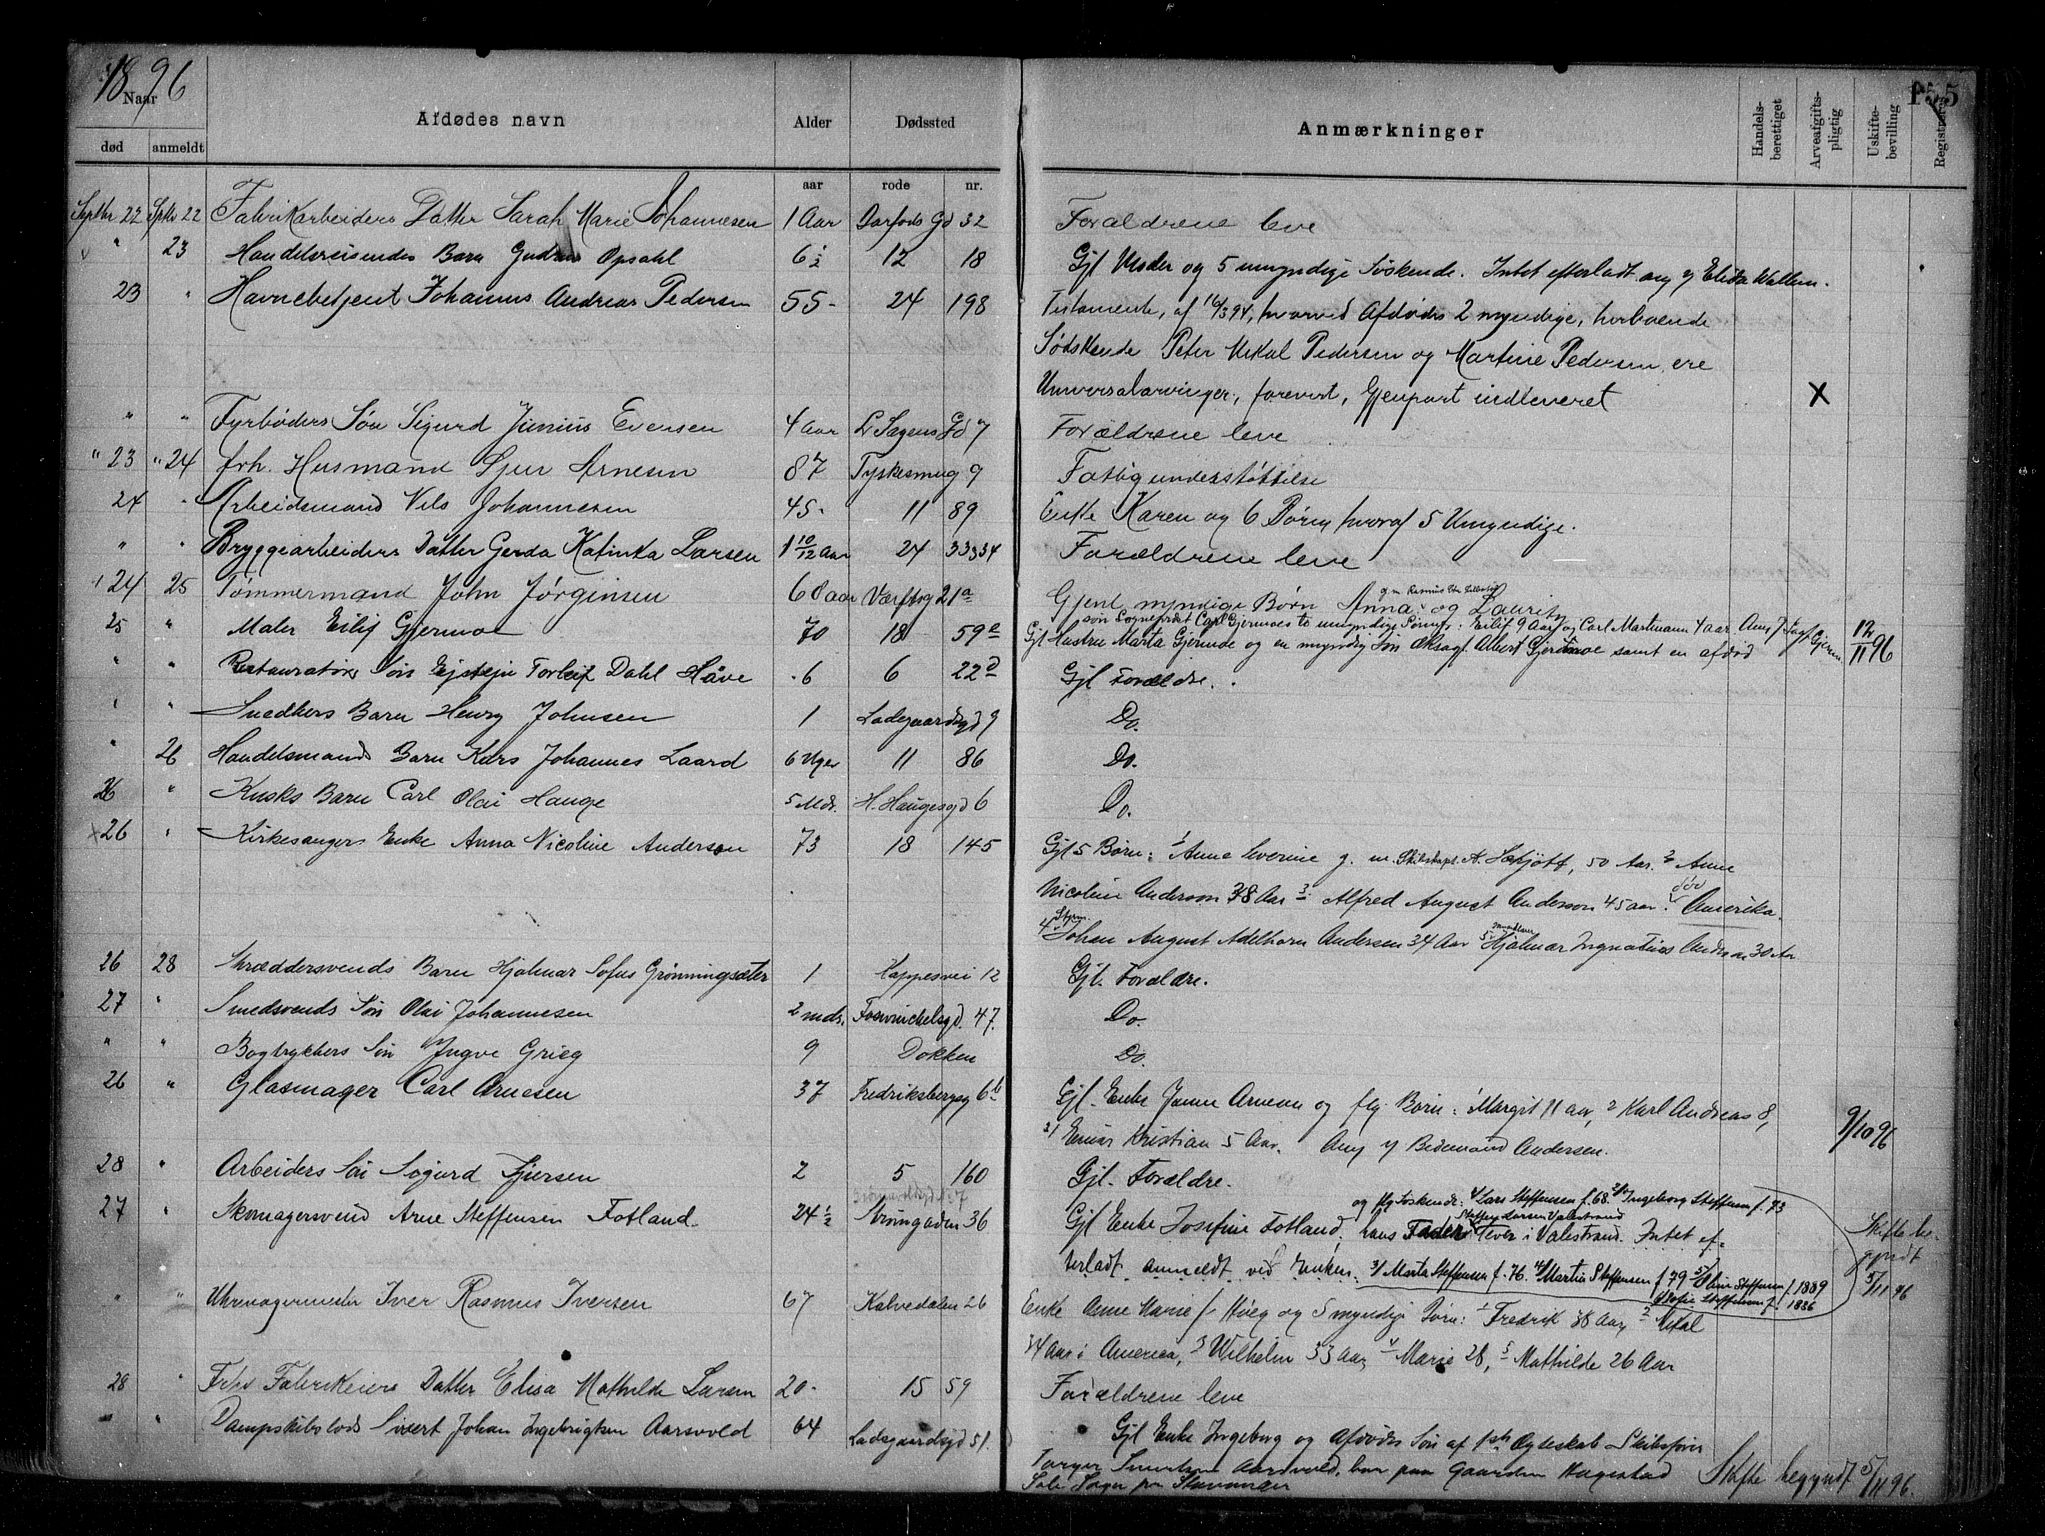 1896
155
Naar
Afdødes navn
Alder
Dødssted
Anmærkninger
Handels-berettiget
Arveafgifts-pligtig
Uskifte-bevilling
død
anmeldt
aar
rode
nr.
Septbr 22 Sptbr 22 Fabrikarbeiders Datter Sarah Marie Johannesen 1 Aar Gd 32 Forældrene leve
" 23 Handelsreisendes Barn Gudrun Opsahl 6½ 12 18 Gjl Moder og 5 umyndige Søskende. Intet efterladt. anm v/ Elida Wallem.
23 " Havnebetjent Johannes Andreas Pedersen 55 - 24 198 Testamente, af 16/3 94, hvorved Afdødes 2 myndige, herboende
Sødskende Peter Mikal Pedersen og Martine Pedersen, ere
Universalarvinger, forevist, Gjenpart indleveret X
" " Fyrbøders Søn Sigurd Junius Evensen 4 Aar L Sagens Gd 7 Forældrene leve
" 23 " 24 frh. Husmand Sjur Arnesen 87 Tyskesmug 9 Fattigunderstøttelse
24 " Arbeidsmand Nils Johannesen 45 - 11 89 Enke Karen og 6 Børn, hvoraf 5 Umyndige.
" " Bryggearbeiders Datter Gerda Katinka Larsen 1 10/12 Aar 24 33 34 Forældrene leve
24 25 Tømmermand John Jørgensen 68 aar Værftsg 21a Gjenl. myndige Børn Anna og Lauritz
g. m. Rasmus
søn Carl Gjermoes to umyndige Sønner: Eilif 9 Aar og Carl Martmann 4 aar.
25 " Maler Eilif Gjermoe 70 18 59e Gjl Hustru Marta Gjermoe og en myndig Søn Albert Gjermoe samt en afdød 12/11 96
" " Restauratørs Søn Ejstejn Torleif Dahl Håve 6 6 22d Gjl Forældre.
" " Snedkers Barn Henry Johnsen 1 Ladegaardsgd 9 Do.
" 26 Handelsmands Barn Kars Johannes Laard 6 Uger 11 86 Do.
26 " Kusks Barn Carl Olai Hauge 5 Mdr. H. Haugesgd 6 Do.
26 " Kirkesangers Enke Anna Nicoline Anderson 73 18 145 Gjl 5 Børn: 1 Anne Severine g. m. Skibskapt. A. Høfjøtt, 50 Aar. 2 Anne
Nicoline Anderson 38 Aar 3 Alfred August Anderson 45 aar i Amerika.
4 Styrm. Johan August Adelhorn Andersen 34 Aar 5 Hjalmar Ingnatius Andersen 30 Aar
26 28 Skræddersvends Barn Hjalmar Sofus Grønningsæter 1 Kappesvei 12 Gjl. Forældre.
27 " Smedsvends Søn Olai Johannesen 2 mdr. Foswinckelsgd. 47. Do.
" " Bogtrykkers Søn Yngve Grieg 9 Dokken Do.
26 " Glasmager Carl Arnesen 37 Fredriksbergsg 6b Gjl. Enke Janna Arnesen og flg. Børn: 1 Margit 11 aar, 2 Karl Andreas 8, 9/10 96
3/ Einar Kristian 5 Aar. Anm v/ Bedemand Andersen.
28 " Arbeiders Søn Sigurd Fjersen 2 5 160 Gjl. Forældre.
og flg Søskende. 1/ Lars Steffensen f. 68. 2/ Ingeborg Steffensen f. 73
27 " Skomagersvend Arne Steffensen Fotland. 24½ Strangaden 36 Gjl Enke Josefine Fotland, hans Fader Steffen Larsen Valestrand lever i Valestrand. Intet ef-
terladt anmeldt ved Enken. 3/ Marta Steffensen f. 76. 4/ Martin Steffensen f 79 5/ Oline Steffensen f. 1889
Sofie Steffensen f. 1886
Skifte be-
gyndt
5/11 96
" " Uhrmagermester Iver Rasmus Iversen 67 Kalvedalen 26 Enke Anne Marie f. Høeg og 5 myndige Børn: 1 Fredrik 38 Aar, 2 Mikal
34 Aar i America, 3 Wilhelm 33 Aar, 4 Marie 28, 5 Mathilde 26 Aar
28 " Fabrikeiers Datter Elisa Mathilde Larsen 20 - 15 59 Forældrene leve
" " Dampskibslods Sivert Johan Ingebrigtsen Aarsvold 64 Ladegaardsgd 51. Gjl Enke Ingeborg og afdødes Søn af 1ste Ægteskab Skibsfører
Torger Sivertsen Aarsvold, bor paa Gaarden Hagestad Skifte begyndt 5/11 96.